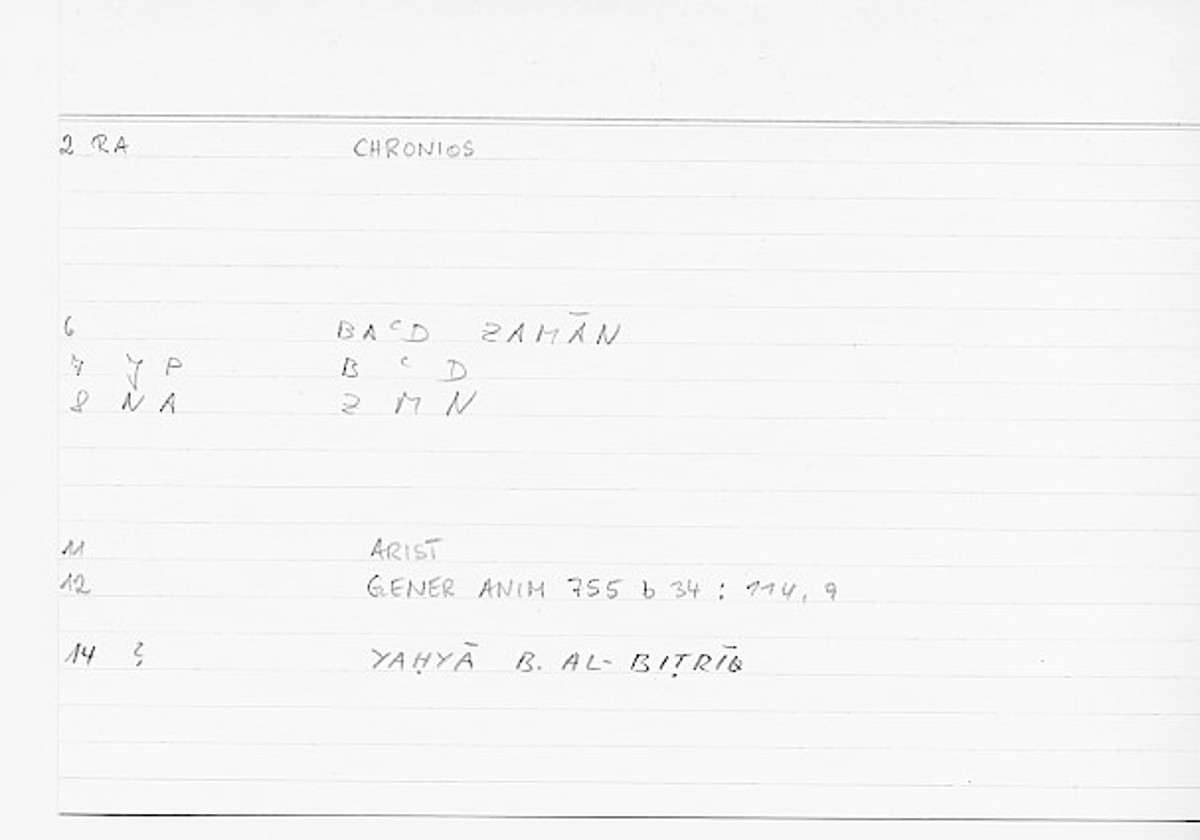 2 RA CHRONIOS
6 BAᶜD ZAMĀN
7 JP B ᶜ D
8 NA Z M N
11 ARIST
12 GENER ANIM 755 b 34 : 114, 9
14 ? YAḤYĀ B. AL-BIṬRĪQ